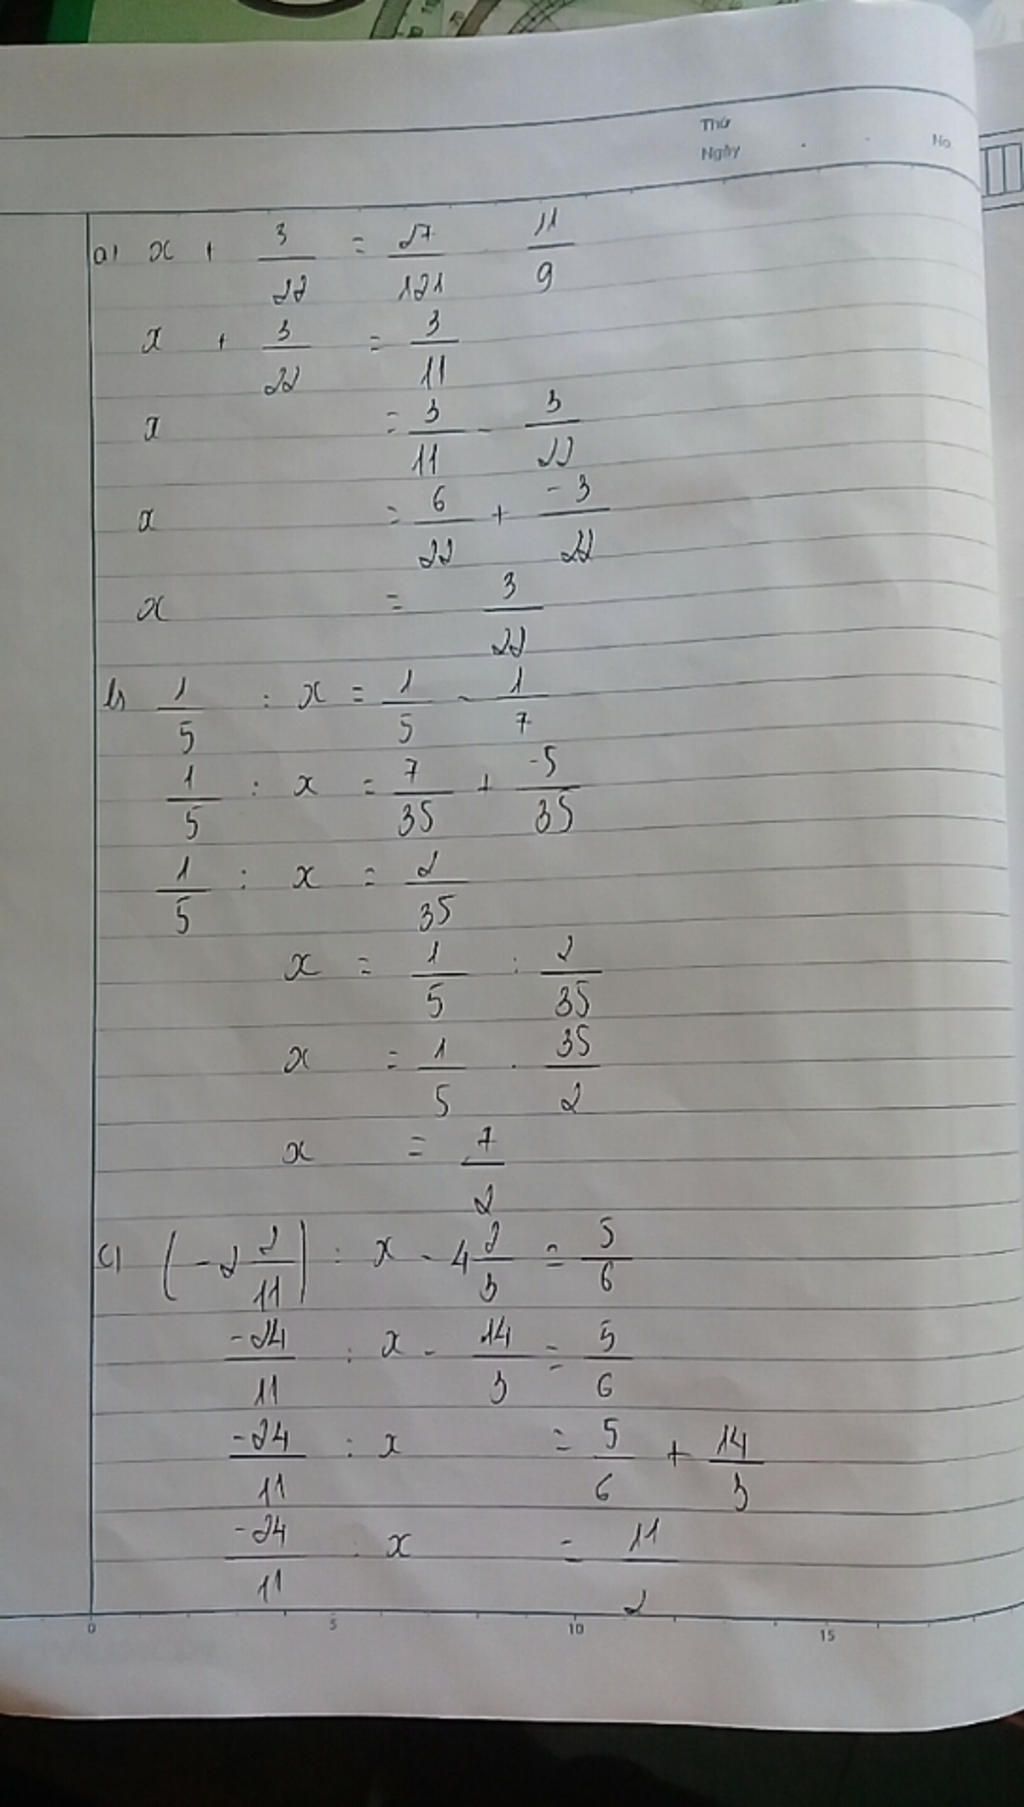 Thứ
Ngày . . No.
a) x + 3/22 = 27/121 . 11/9
x + 3/22 = 3/11
x = 3/11 - 3/22
x = 6/22 + -3/22
x = 3/22
b) 1/5 : x = 1/5 - 1/7
1/5 : x = 7/35 + -5/35
1/5 : x = 2/35
x = 1/5 : 2/35
x = 1/5 . 35/2
x = 7/2
c) (-2 2/11) : x - 4 2/3 = 5/6
-24/11 : x - 14/3 = 5/6
-24/11 : x = 5/6 + 14/3
-24/11 : x = 11/2
0 5 10 15